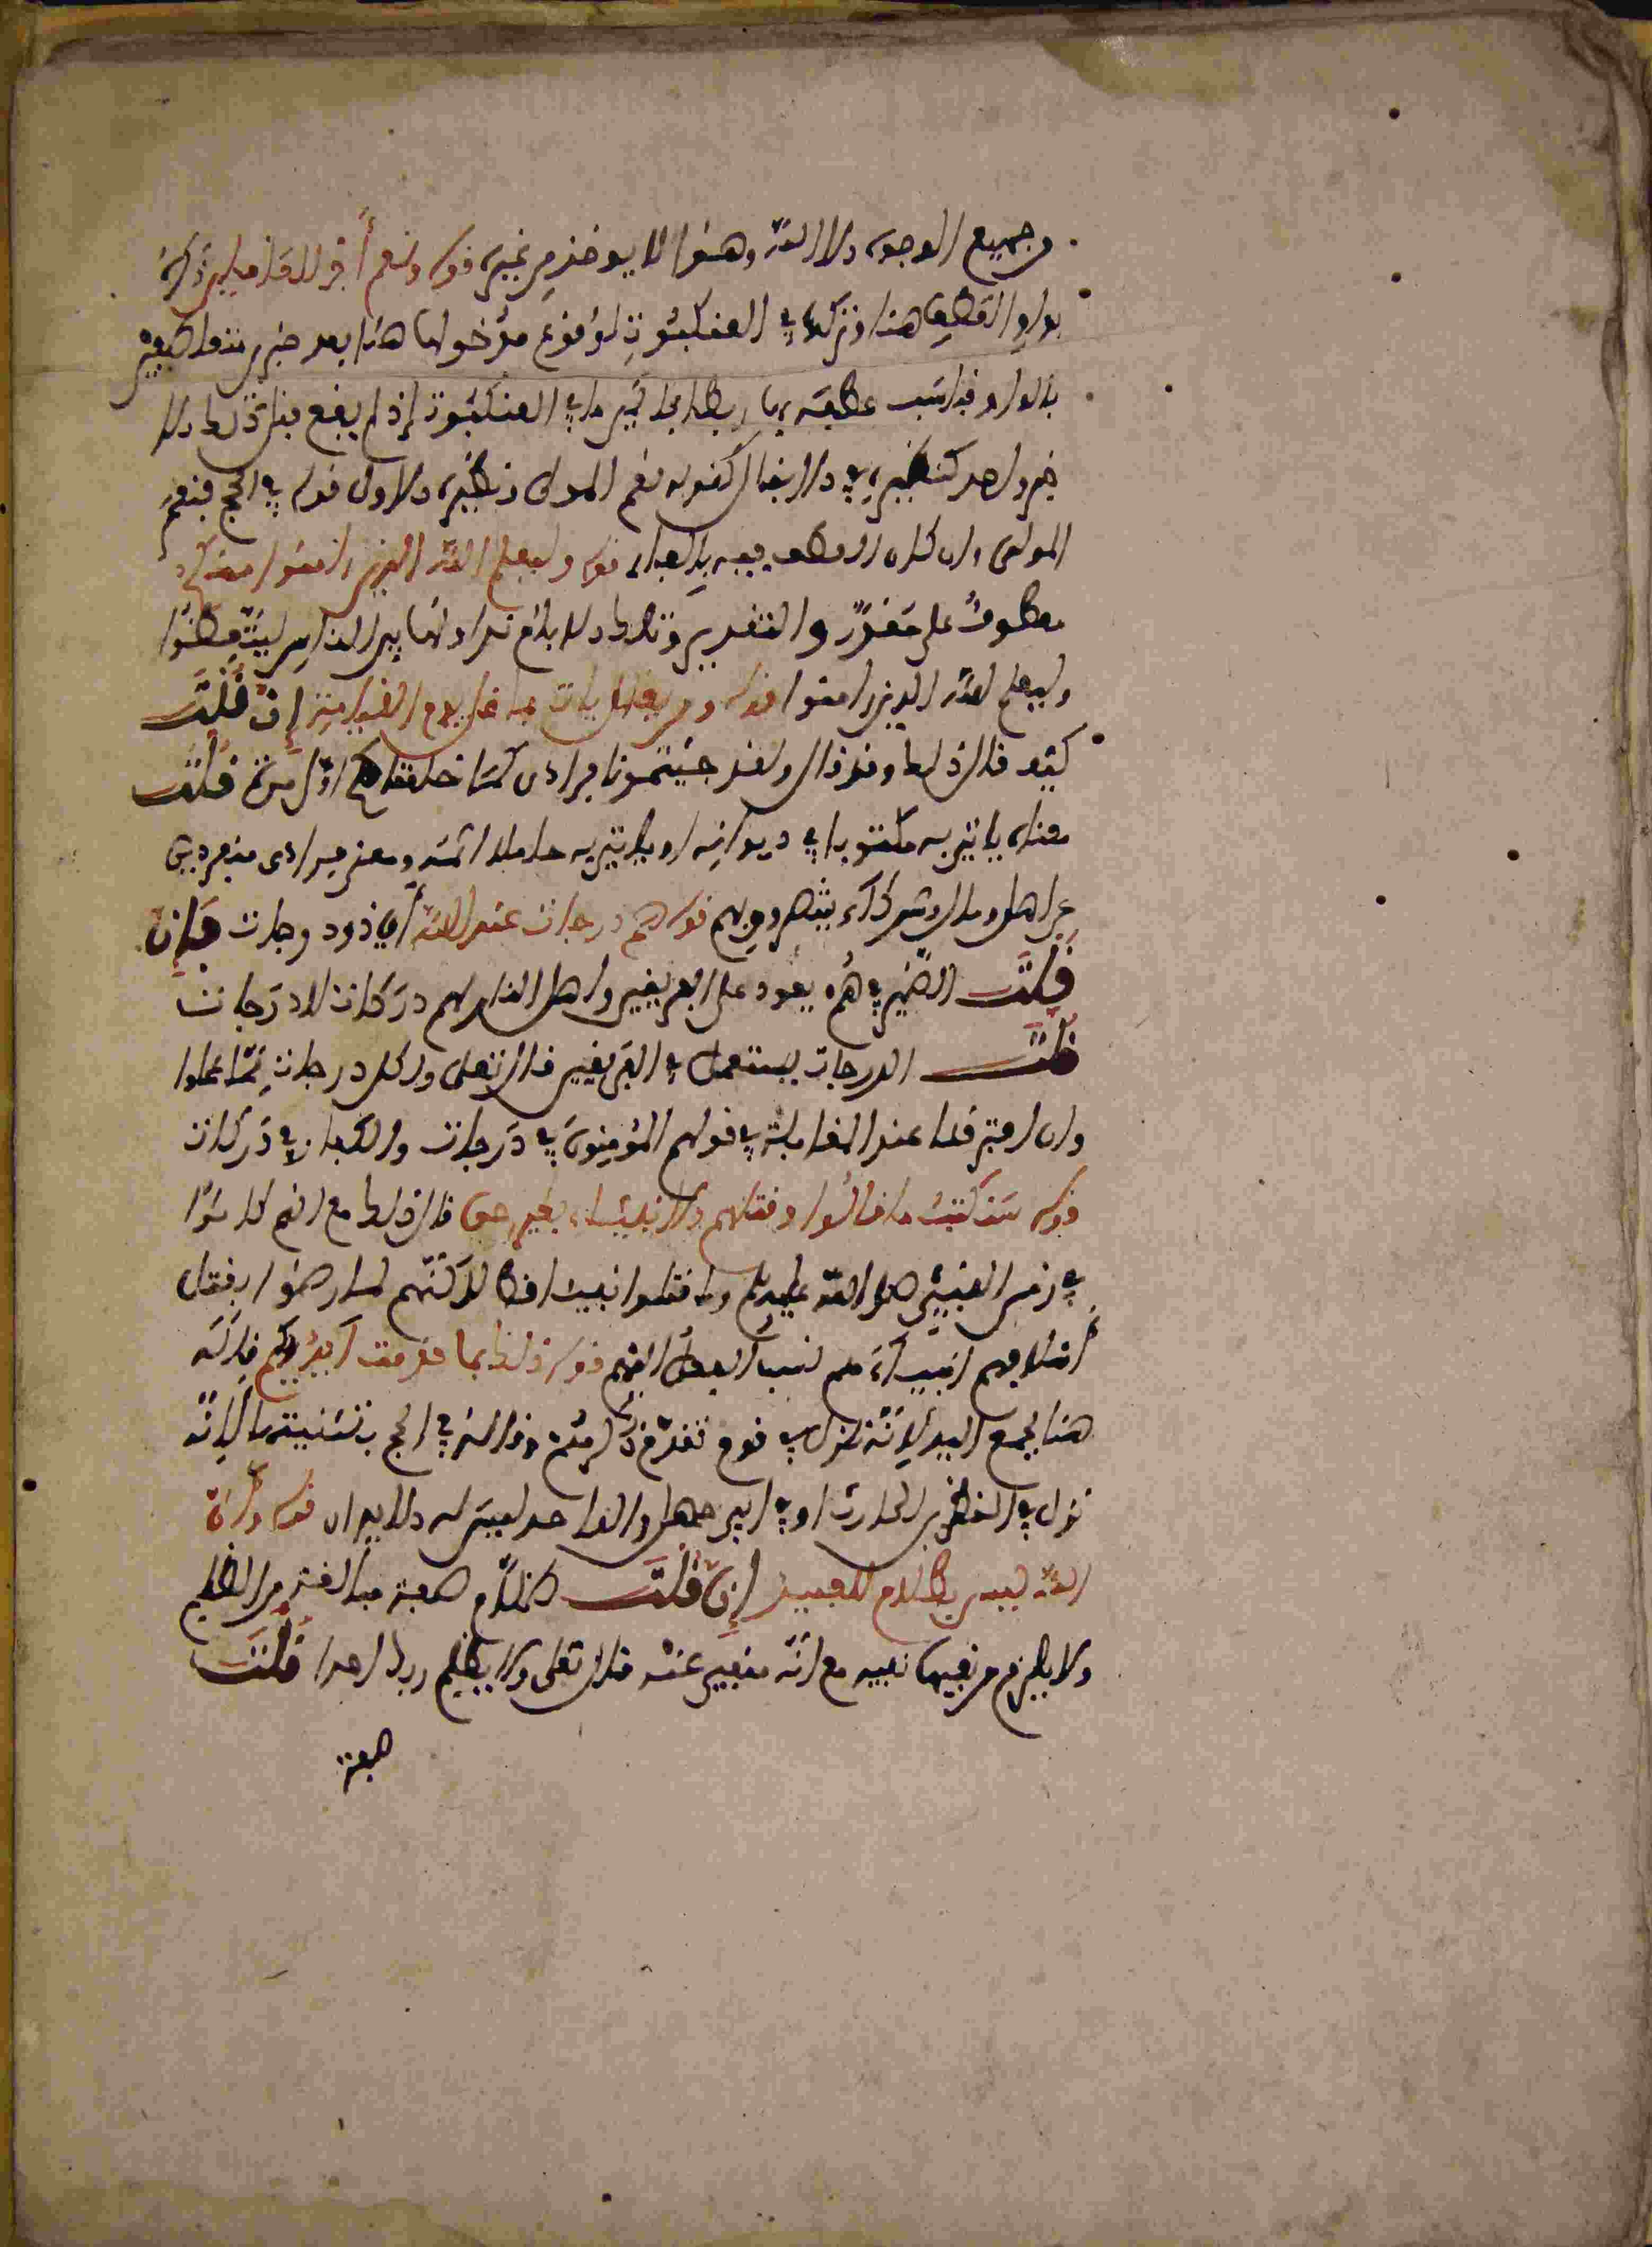 من جميع الوجوه إلا الله وهذا لا يوخذ من غيره قوله ونعم أجر العاملين ذكره
بواو العطف هنا وتركها في العنكبوت لوقوع مدخولها هنا بعد خبرين متعاطفين
بالواو فناسب عطفه بها ربطا بخلاف ما في العنكبوت إذ لم يقع قبل ذلك إلا
خبر واحد كنظيره في الانفال كقوله نعم المولى ونظيره الاول قوله في الحج فنعم
المولى وان كان العطف فيه بالفاء قوله وليعلم الله الذين ءامنوا منكم
معطوف على مقدر والتقدير وتلك الايام نداولها بين الناس ليتعظوا
وليعلم الله الذين ءامنوا قوله ومن يغلل يات بما غل يوم القيامة إن قلت
كيف قال ذلك وقد قال ولقد جيتمونا فرادى كما خلقناكم اول مرة قلت
معناه ياتي به مكتوبا في ديوانه او ياتي به حاملا اثمه ومعنى فرادى منفردين
عن اهل ومال وشركاء ينصرونهم قوله هم درجات عند الله أي ذوو درجات فإن
قلت الضمير في هم يعود على الفريقين واهل النار لهم دركات لا درجات
قلت الدرجات يستعمل في الفريقين قال تعلى ولكل درجات مما عملوا
وان افترقا عند المقابلة في قولهم المؤمنون في درجات والكفار في دركات
قوله سنكتب ما قالوا وقتلهم الانبياء بغير حق قال ذلك مع انهم كانوا
في زمن النبي صلى الله عليه وسلم وما قتلوا نبيا قط لاكنهم لما رضوا بقتل
أسلافهم انبياءهم نسب الفعل اليهم قوله ذلك بما قدمت أيديكم قاله
هنا بجمع اليد لأنه نزل في قوم تقدم ذكرهم وقاله في الحج بتثنيتها لأنه
نزل في النضر بن الحارث او في ابي جهل والواحد ليس له الا يدان قوله وأن
الله ليس بظلام للعبيد إن قلت ظلام صيغة مبالغة من الظلم
ولا يلزم من نفيها نفيه مع انه منفي عنه قال تعلى ولا يظلم ربك احدا قلت
صيغة